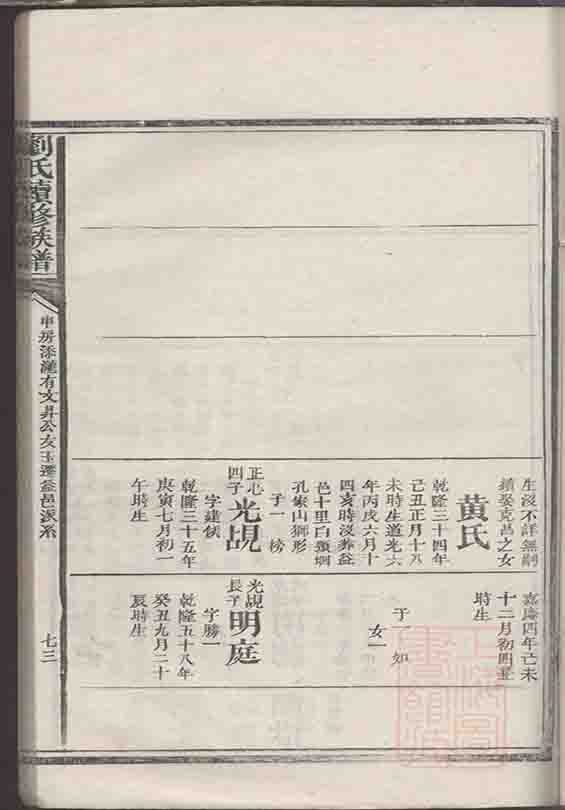 劉氏續修族譜
七三
生沒不詳無嗣
續娶克昌之女
黃氏
乾隆三十四年
己丑正月十八
未時生道光六
年丙戌六月十
四亥時沒葬益
邑十里白頭垌
孔家山獅形
子一 榜
正心
四子
光覘
字建猷
乾隆三十五年
庚寅七月初一
午時生
嘉慶四年己未
十二月初四丑
時生
子一 如
女一
光覘
長子
明庭
字勝一
乾隆五十八年
癸丑九月二十
辰時生